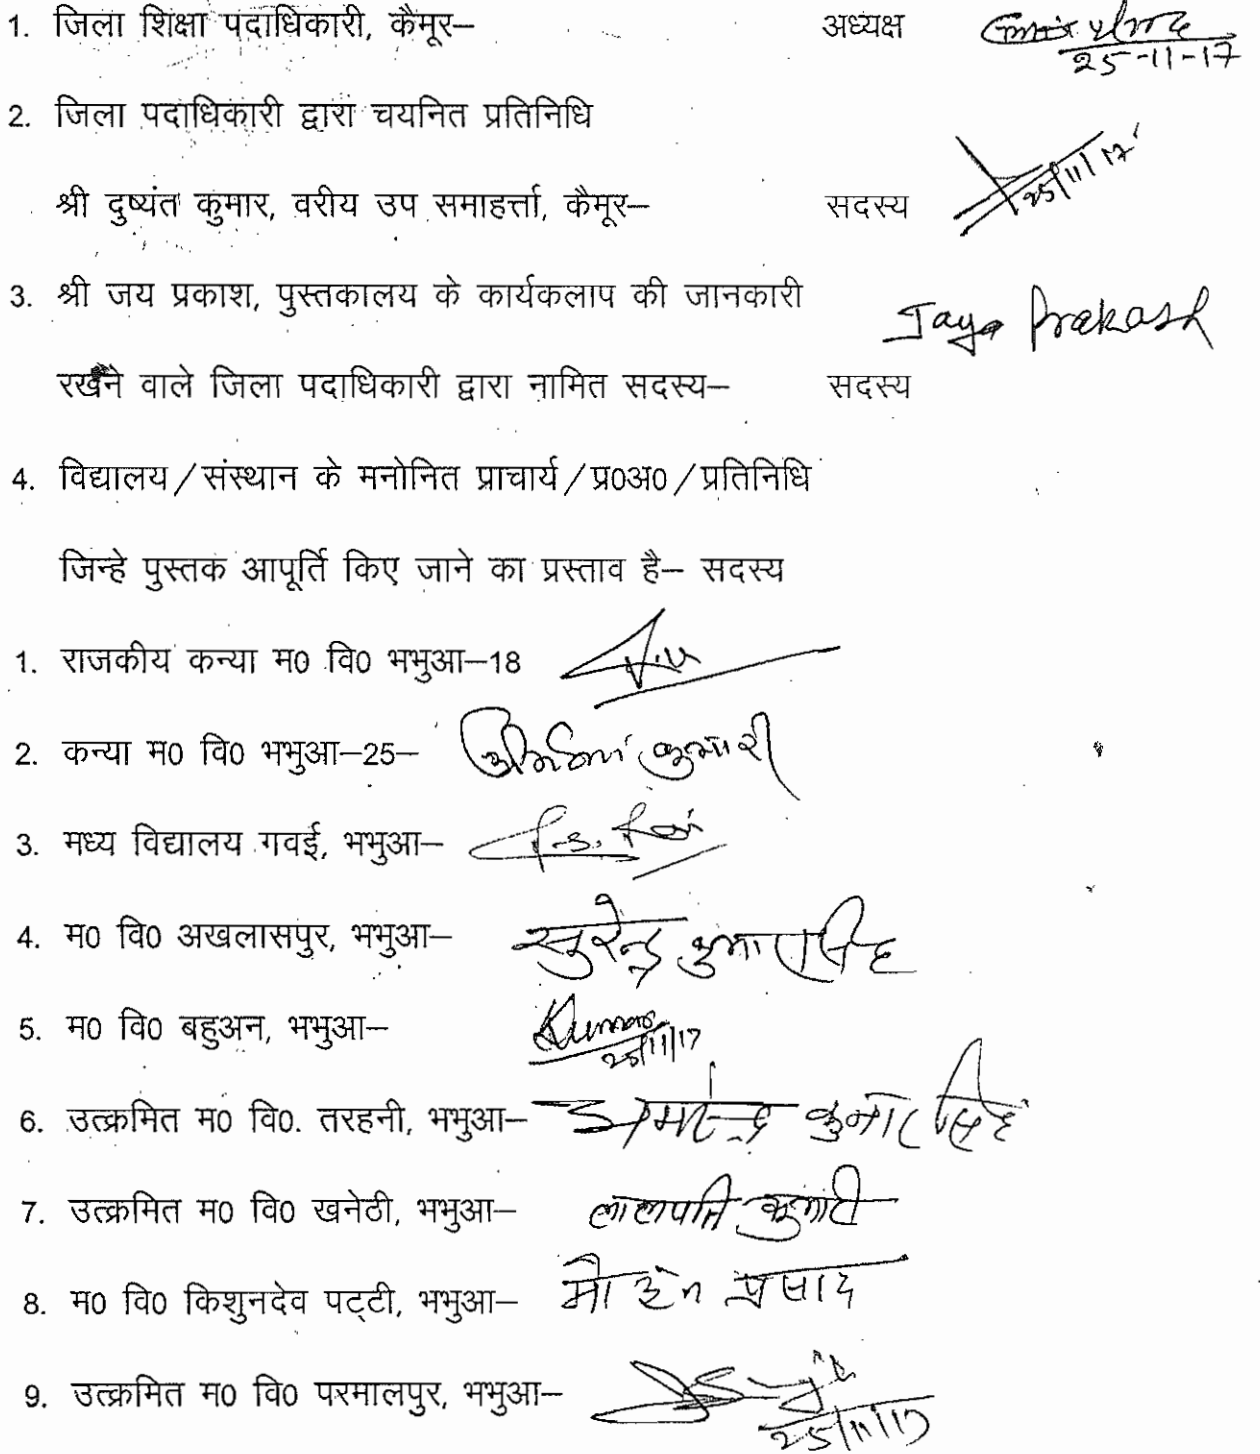 1. जिला शिक्षा पदाधिकारी, कैमूर– अध्यक्ष
25-11-17
2. जिला पदाधिकारी द्वारा चयनित प्रतिनिधि
श्री दुष्यंत कुमार, वरीय उप समाहर्त्ता, कैमूर– सदस्य 25/11/17
3. श्री जय प्रकाश, पुस्तकालय के कार्यकलाप की जानकारी Jaya Prakash
रखनें वाले जिला पदाधिकारी द्वारा नामित सदस्य– सदस्य
4. विद्यालय/संस्थान के मनोनित प्राचार्य/प्र0अ0/प्रतिनिधि
जिन्हे पुस्तक आपूर्ति किए जाने का प्रस्ताव है– सदस्य
1. राजकीय कन्या म0 वि0 भभुआ–18
2. कन्या म0 वि0 भभुआ–25– कुमारी
3. मध्य विद्यालय गवई, भभुआ–
4. म0 वि0 अखलासपुर, भभुआ– सुरेन्द्र कुमार सिंह
5. म0 वि0 बहुअन, भभुआ– Kumar
25/11/17
6. उत्क्रमित म0 वि0. तरहनी, भभुआ– कुमार सिंह
7. उत्क्रमित म0 वि0 खनेठी, भभुआ– लालपति कुमारी
8. म0 वि0 किशुनदेव पट्टी, भभुआ– प्रसाद
9. उत्क्रमित म0 वि0 परमालपुर, भभुआ–
25/11/17